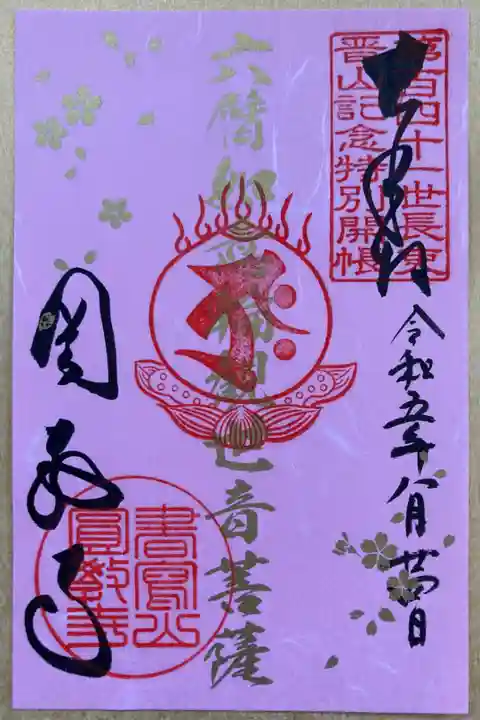 第百四十一世長吏
晉山記念特別開帳
奉拝
令和五年八月廿四日
六臂如意輪観世音菩薩
圓教寺
書寫山
圓敎寺